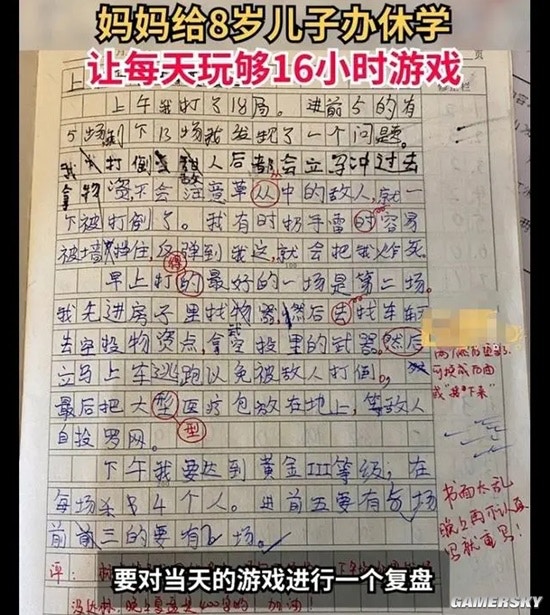 妈妈给8岁儿子办休学
让每天玩够16小时游戏
上午我打了18局。进前5的有
5场,剩下13场我发现了一个问题。
我打倒敌人后都会立马冲过去
拿物资,不会注意草从中的敌人,就一
下被打倒了。我有时扔手雷时容易
被墙挡住,反弹到我这,就会把我炸死。
早上打的最好的一场是第二场。
得
我先进房子里找物器,然后去找车辆
去空投物资点,拿空投里的武器,然后
立马上车逃跑以免被敌人打倒。
最后把大型医疗包放在地上,等敌人
自投罗网。
型
下午我要达到黄金III等级;在
每场杀多4个人。进前五要有5场
前三的要有2场。
可换成
或"接下来"
书面太乱
晚上再不认真
写就重写!
评:
要对当天的游戏进行一个复盘
GAMERSKY